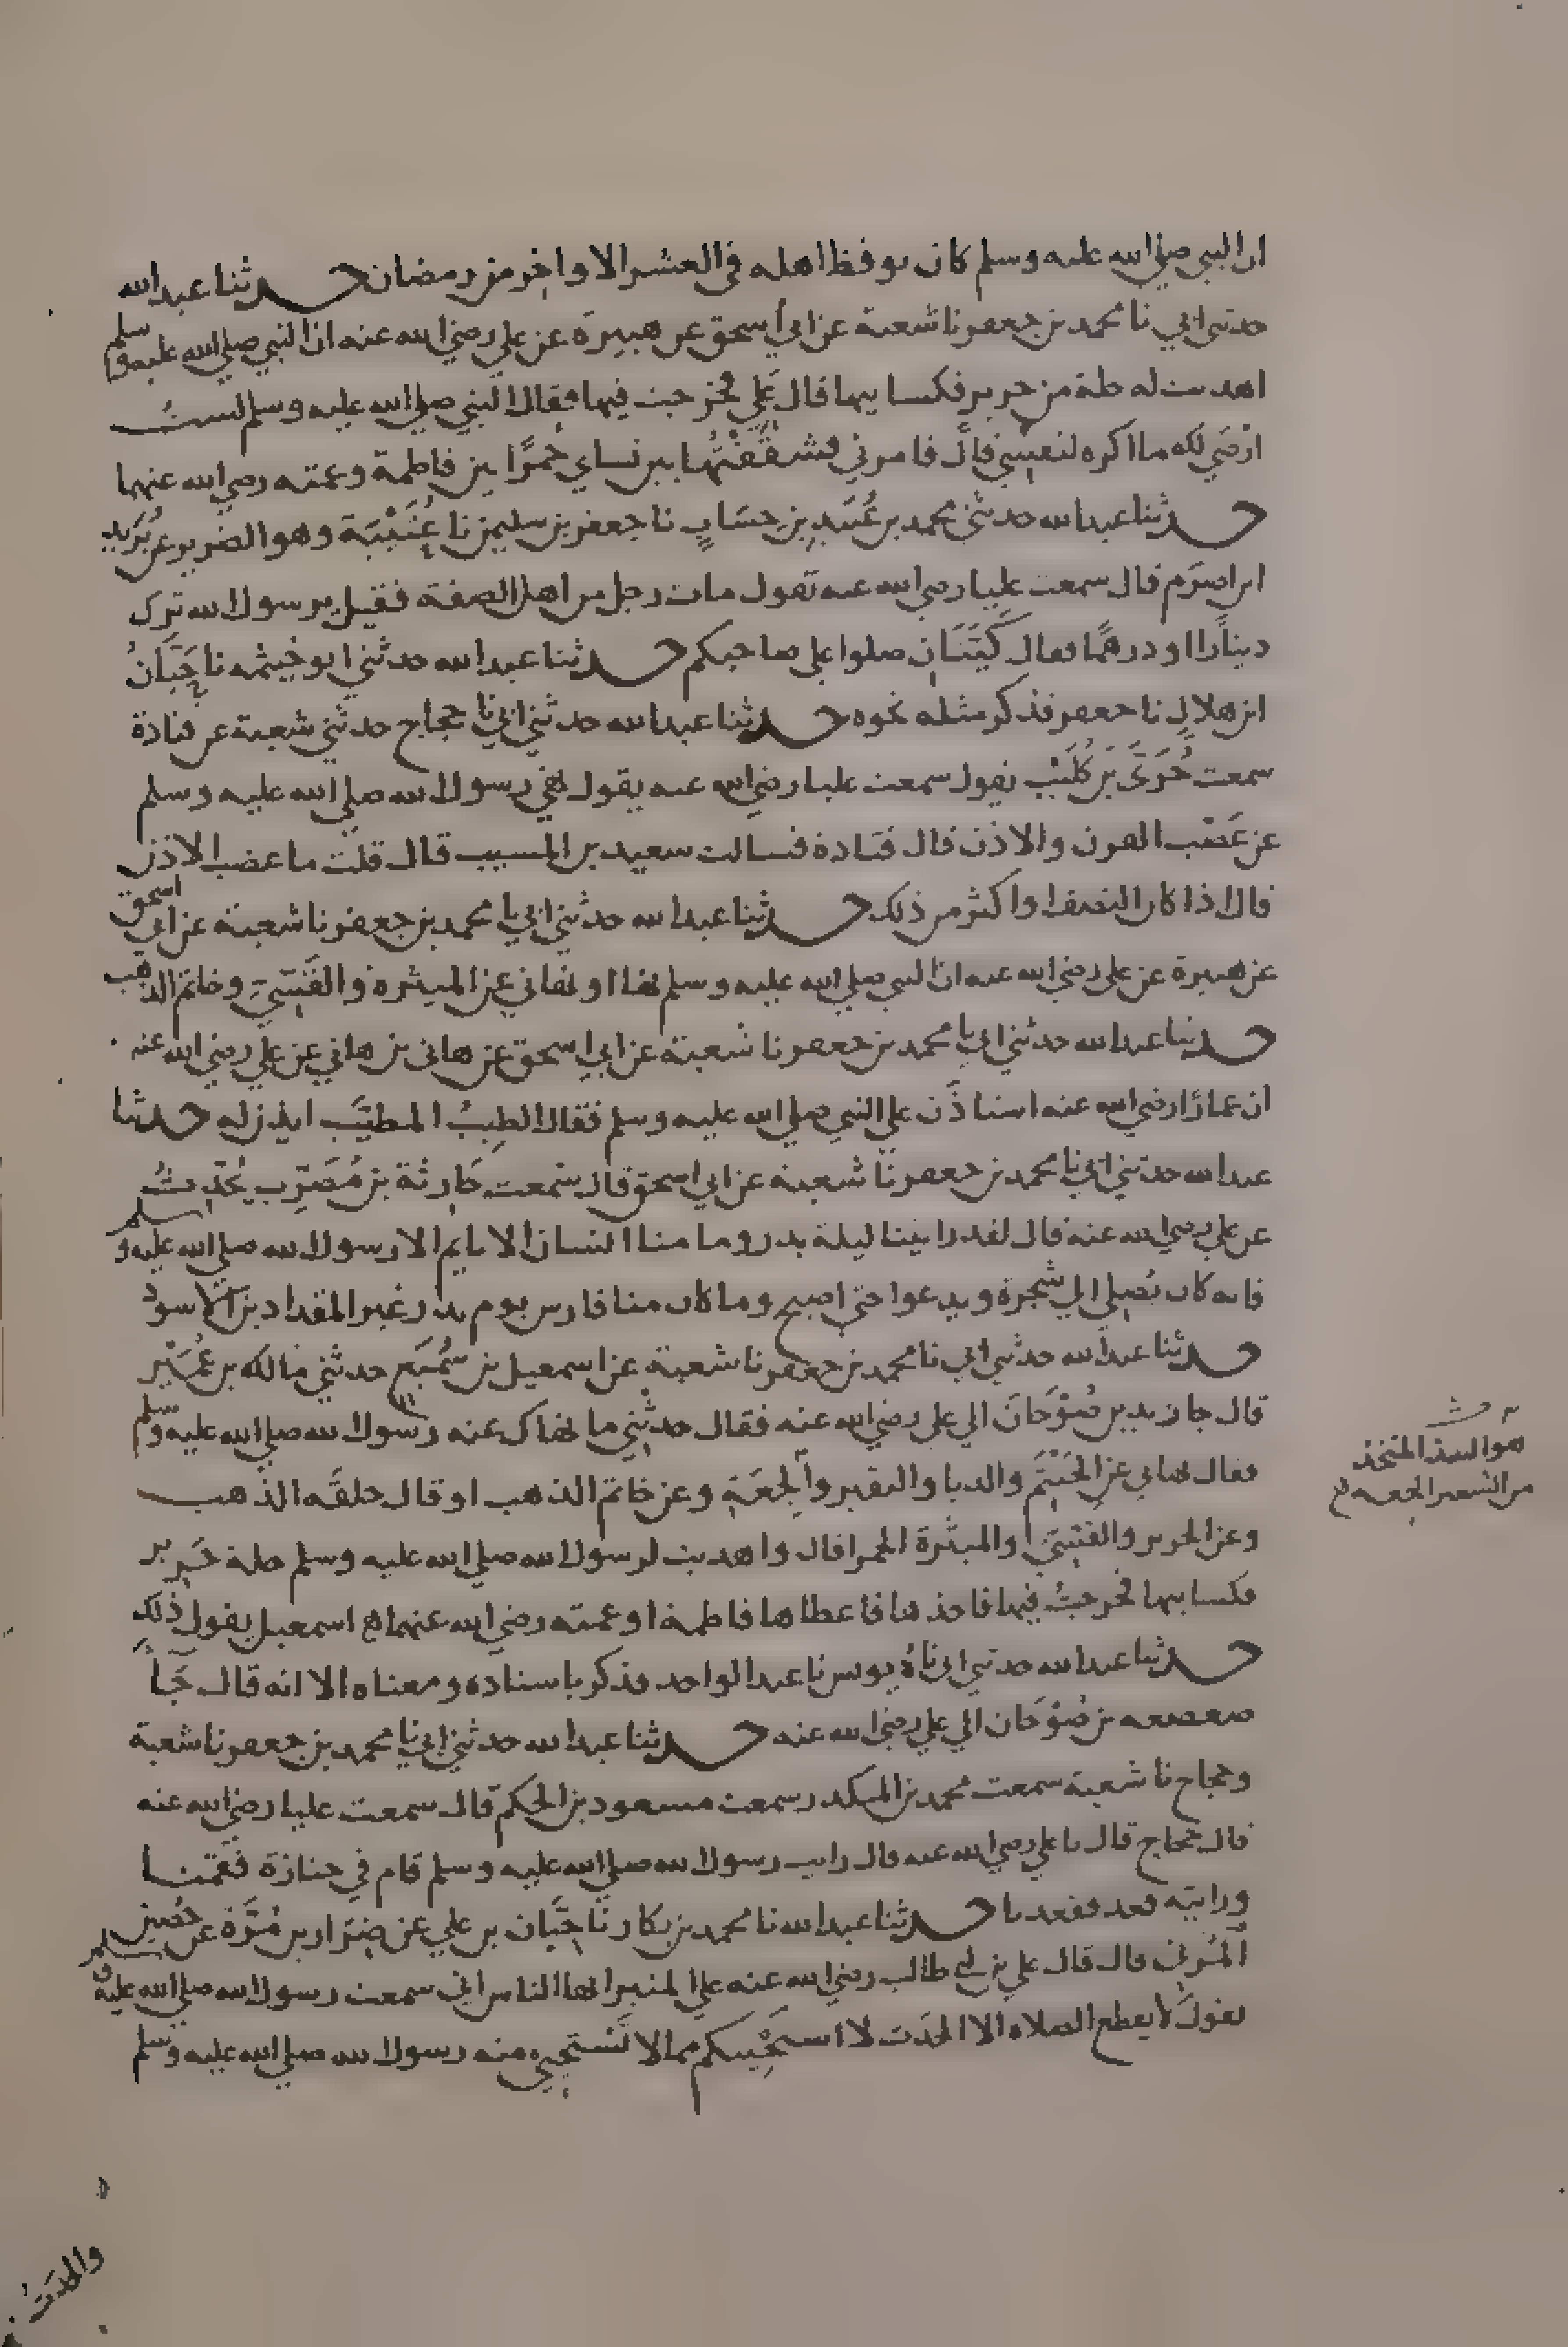 ان النبي صلى الله عليه وسلم كان يوقظ اهله في العشر الاواخر من رمضان حدثنا عبد الله
حدثني ابي نا محمد بن جعفر نا شعبة عن ابي اسحق عن هبيرة عن علي رضي الله عنه ان النبي صلى الله عليه وسلم
اهديت له حلة من حرير فكسانيها قال علي فخرجت فيها فقال النبي صلى الله عليه وسلم لست
ارضى لك ما اكره لنفسي قال فامرني فشققتها بين نساي خمرا بين فاطمة وعمته رضي الله عنهما
حدثنا عبد الله حدثني محمد بن عبيد بن حساب نا جعفر بن سليمن نا عتيبة وهو الضرير عن بريد
ابن اصرم قال سمعت عليا رضي الله عنه يقول مات رجل من اهل الصفة فقيل يرسول الله ترك
دينارا او درهما فقال كيتان صلوا على صاحبكم حدثنا عبد الله حدثني ابو خيثمه نا حبان
ابن هلال نا جعفر فذكر مثله نحوه حدثنا عبد الله حدثني ابي نا حجاج حدثني شعبة عن قتادة
سمعت جرى بن كليب يقول سمعت عليا رضي الله عنه يقول نهى رسول الله صلى الله عليه وسلم
عن عضب القرن والاذن قال قتادة فسالت سعيد بن المسيب قال قلت ما عضب الاذن
قال اذا كان النصف او اكثر من ذلك حدثنا عبد الله حدثني ابي نا محمد بن جعفر نا شعبة عن ابي اسحق
عن هبيرة عن علي رضي الله عنه ان النبي صلى الله عليه وسلم نها او نهاني عن الميثره والقسي وخاتم الذهب
حدثنا عبد الله حدثني ابي نا محمد بن جعفر نا شعبة عن ابي اسحق عن هانى بن هاني عن علي رضي الله عنه
ان عمارا رضي الله عنه استاذن على النبي صلى الله عليه وسلم فقال الطيب المطيب ايذن له حدثنا
عبد الله حدثني ابي نا محمد بن جعفر نا شعبة عن ابي اسحق قال سمعت حارثة بن مضرب يحدث
عن علي رضي الله عنه قال لقد رايتنا ليلة بدر وما منا انسان الا نايم الا رسول الله صلى الله عليه وسلم
فانه كان يصلي الي شجرة ويدعوا حتى اصبح وما كان منا فارس يوم بدر غير المقداد بن الاسود
حدثنا عبد الله حدثني ابي نا محمد بن جعفر نا شعبة عن اسمعيل بن سميع حدثني مالك بن عمير
قال جا زيد بن صوحان الى علي رضي الله عنه فقال حدثني ما نهاك عنه رسول الله صلى الله عليه وسلم
فقال نهاني عن الحنتم والدبا والنقير والجعة وعن خاتم الذهب او قال حلقه الذهب
وعن الحرير والقسي والميثرة الحمرا قال واهديت لرسول الله صلى الله عليه وسلم حلة حرير
فكسانيها فخرجت فيها فاخذها فاعطاها فاطمة او عمته رضي الله عنهما اسمعيل يقول ذلك
حدثنا عبد الله حدثني ابي ناه يونس نا عبد الواحد فذكر باسناده ومعناه الا انه قال جآ
صعصعه بن صوحان الي علي رضي الله عنه حدثنا عبد الله حدثني ابي نا محمد بن جعفر نا شعبة
وحجاج نا شعبة سمعت محمد بن المنكدر سمعت مسعود بن الحكم قال سمعت عليا رضي الله عنه
قال حجاج قال نا علي رضي الله عنه قال رايت رسول الله صلى الله عليه وسلم قام في جنازة فقمنا
ورايته قعد فقعدنا حدثنا عبد الله نا محمد بن بكار نا حبان بن علي عن ضرار بن مرة عن حصين
المزني قال قال علي بن ابي طالب رضي الله عنه على المنبر ايها الناس اني سمعت رسول الله صلى الله عليه وسلم
يقول لا يقطع الصلاه الا الحدث لا استحييكم مما لا يستحيي منه رسول الله صلى الله عليه وسلم
هو النبيذ المتخذ
من الشعير الجعه
والحدث